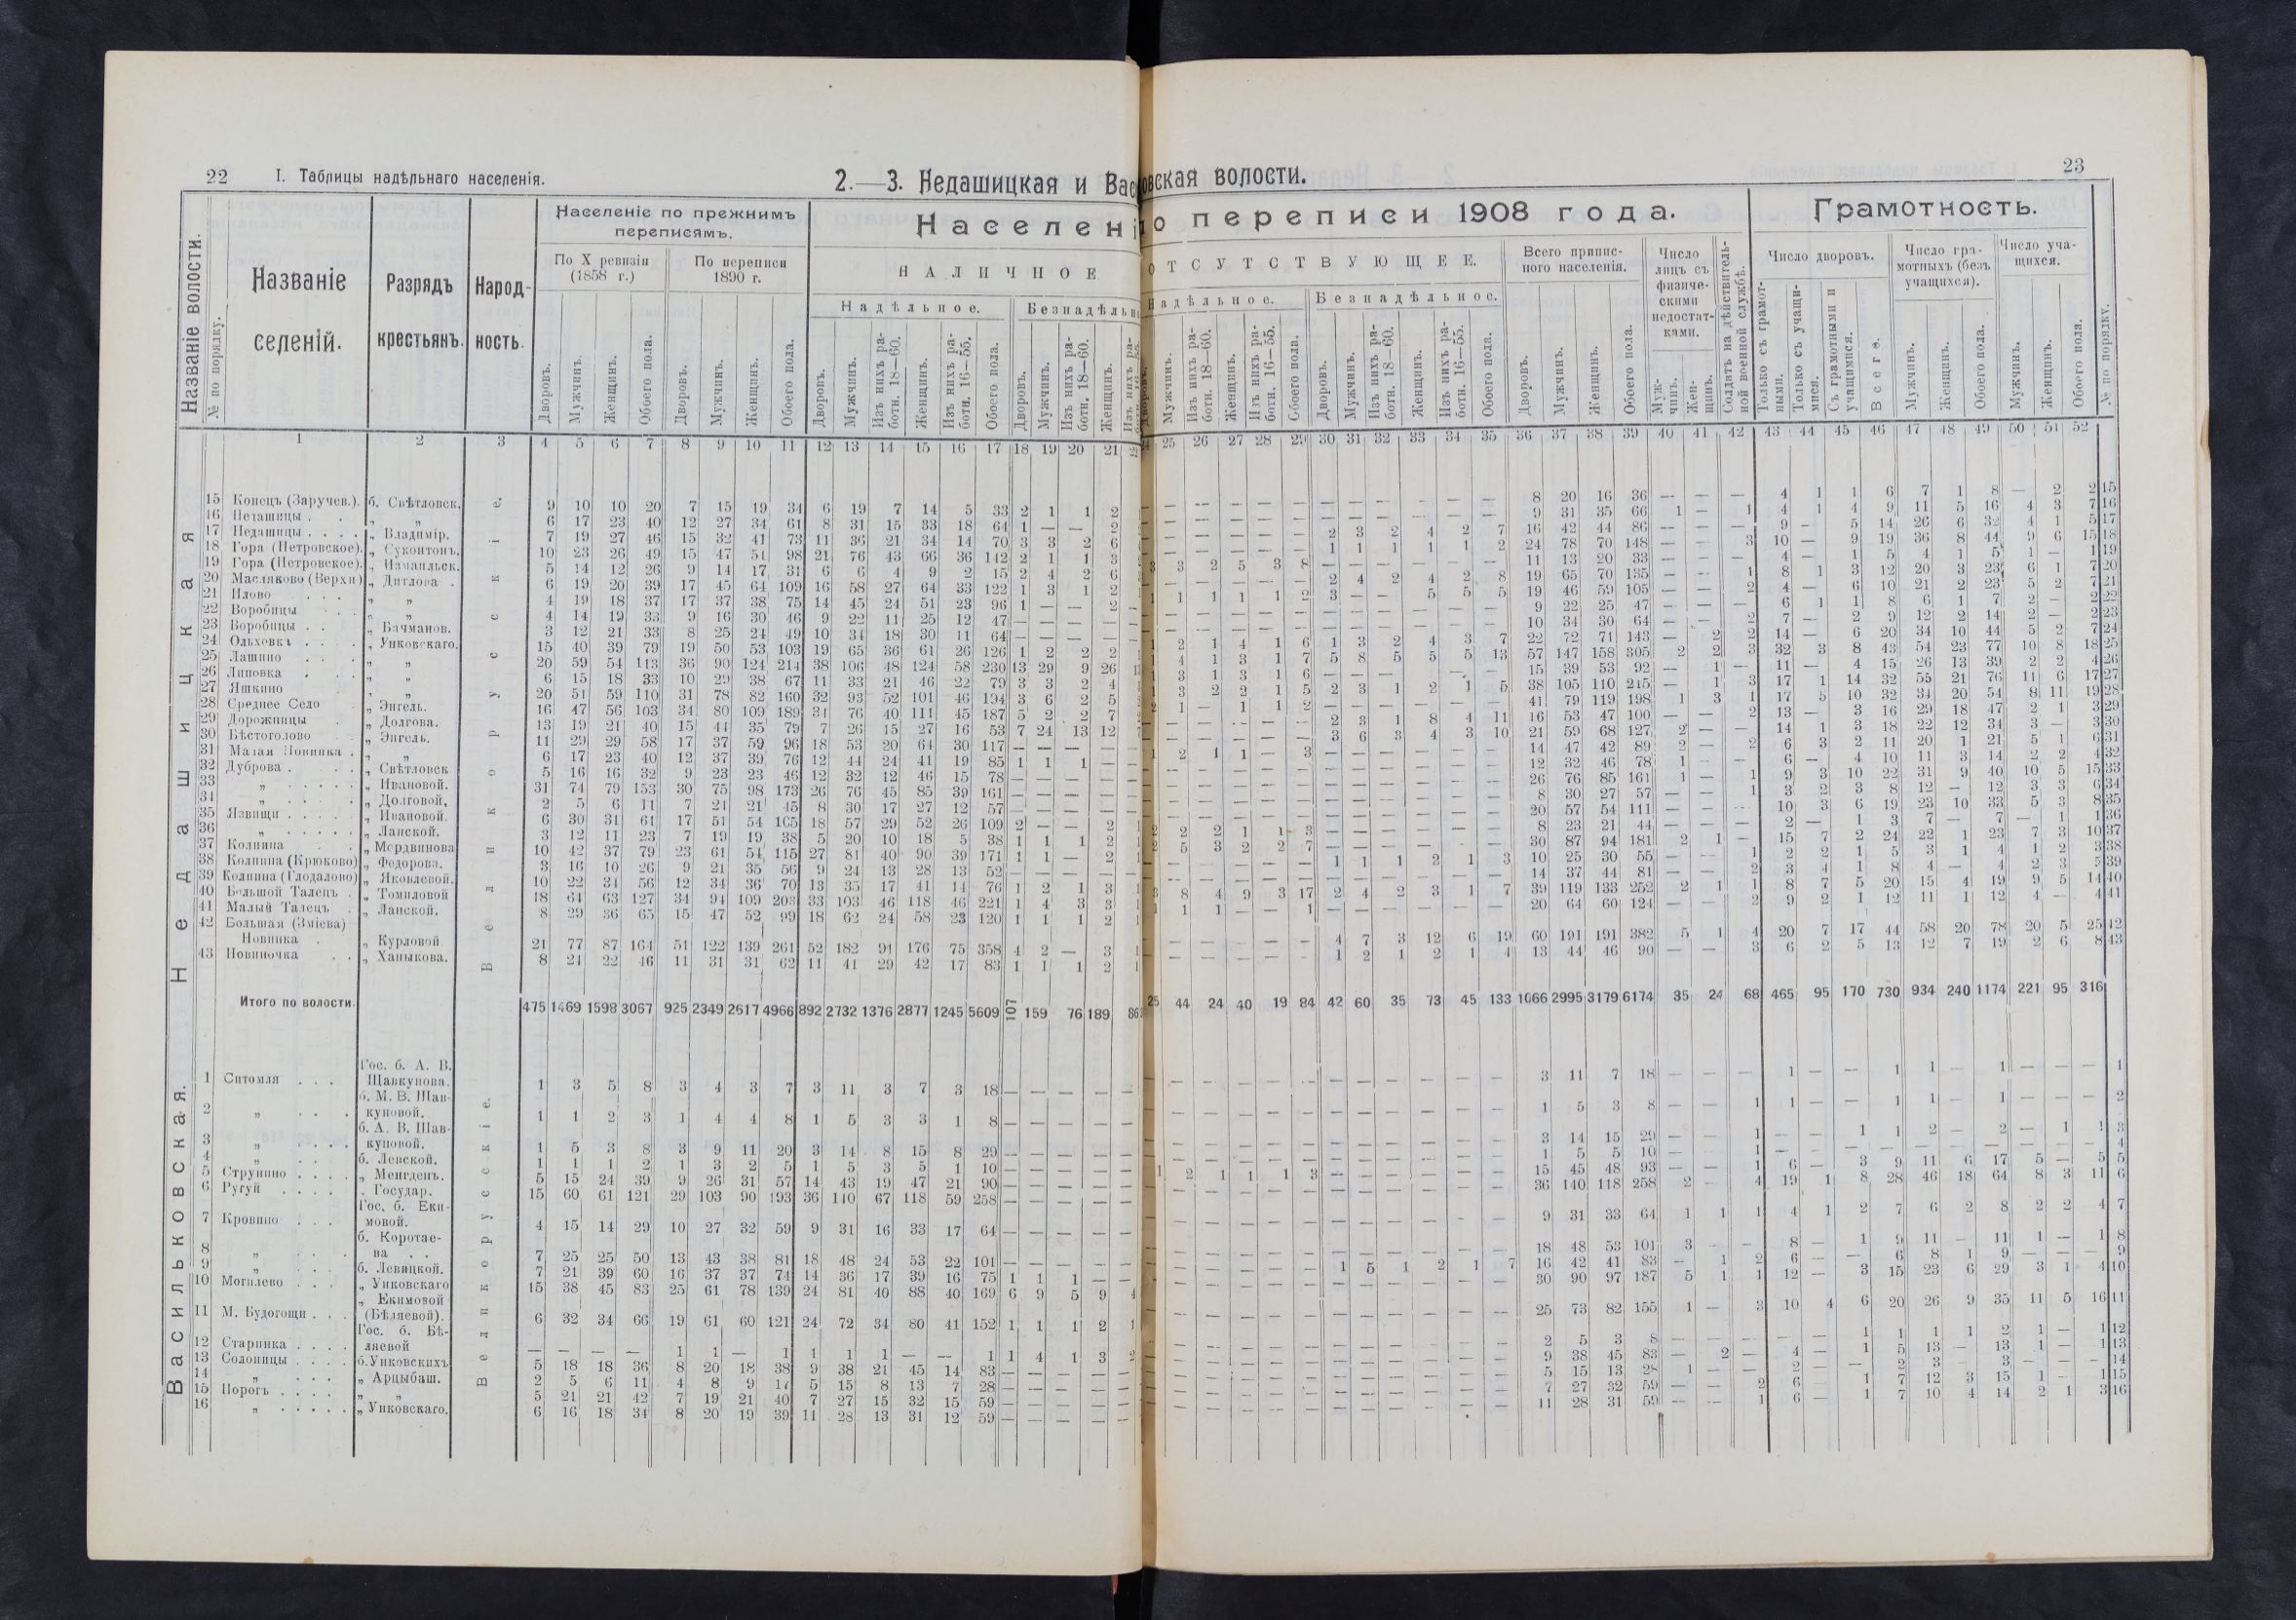 22 I. Таблицы надѣльнаго населенія.
2.—3. Недашицкая и Вас
овская волости.
23
Названіе волости.
№ по порядку.
Названіе селеній.
Разрядъ крестьянъ.
Народность.
Населеніе по прежнимъ переписямъ.
По X ревизіи (1858 г.)
По переписи 1890 г.
Населені
о переписи 1908 года.
НАЛИЧНОЕ
ОТСУТСТВУЮЩЕЕ.
Надѣльное.
Безнадѣльн
Надѣльное.
Безнадѣльное.
Всего приписного населенія.
Число лицъ съ физическими недостатками.
Солдатъ на дѣйствительной военной службѣ.
Грамотность.
Число дворовъ.
Число грамотныхъ (безъ учащихся).
Число учащихся.
Дворовъ. Мужчинъ. Женщинъ. Обоего пола. Дворовъ. Мужчинъ. Женщинъ. Обоего пола. Дворовъ. Мужчинъ. Изъ нихъ работн. 18—60. Женщинъ. Изъ нихъ работн. 16—55. Обоего пола. Дворовъ. Мужчинъ. Изъ нихъ работн. 18—60. Женщинъ.
Мужчинъ. Изъ нихъ работн. 18—60. Женщинъ. Изъ нихъ работн. 16—55. Обоего пола. Дворовъ. Мужчинъ. Изъ нихъ работн. 18—60. Женщинъ. Изъ нихъ работн. 16—55. Обоего пола. Дворовъ. Мужчинъ. Женщинъ. Обоего пола. Мужчинъ. Женщинъ. Только съ грамотными. Только съ учащимися. Съ грамотными и учащимися. Всего. Мужчинъ. Женщинъ. Обоего пола. Мужчинъ. Женщинъ. Обоего пола. № по порядку.
1 2 3 4 5 6 7 8 9 10 11 12 13 14 15 16 17 18 19 20 21
25 26 27 28 29 30 31 32 33 34 35 36 37 38 39 40 41 42 43 44 45 46 47 48 49 50 51 52
Недашицкая
Великорусскіе.
15 Конецъ (Заручев.). б. Свѣтловск. 9 10 10 20 7 15 19 34 6 19 7 14 5 33 2 1 1 2
16 Недашицы . . „ „ 6 17 23 40 12 27 34 61 8 31 15 33 18 64 1 — — 2
17 Недашицы . . . . „ Владимір. 7 19 27 46 15 32 41 73 11 36 21 34 14 70 3 3 2 6
18 Гора (Петровское). „ Суконтонъ. 10 23 26 49 15 47 51 98 21 76 43 66 36 142 2 1 1 3
19 Гора (Петровское). „ Измаильск. 5 14 12 26 9 14 17 31 6 6 4 9 2 15 2 4 2 6
20 Масляково (Верхи) „ Дитлова . 6 19 20 39 17 45 64 109 16 58 27 64 33 122 1 3 1 2
21 Илово . . . „ „ 4 19 18 37 17 37 38 75 14 45 24 51 23 96 1 — — 2
22 Воробицы . . . „ „ 4 14 19 33 9 16 30 46 9 22 11 25 12 47 — — — —
23 Воробицы . . „ Бачманов. 3 12 21 33 8 25 24 49 10 34 18 30 11 64 — — — —
24 Ольховка . . „ Унковскаго. 15 40 39 79 19 50 53 103 19 65 36 61 26 126 1 2 2 2
25 Лашино . . . „ „ 20 59 54 113 36 90 124 214 38 106 48 124 58 230 13 29 9 26
26 Липовка . . „ „ 6 15 18 33 10 29 38 67 11 33 21 46 22 79 3 3 2 4
27 Яшкино „ „ 20 51 59 110 31 78 82 160 32 93 52 101 46 194 3 6 2 5
28 Среднее Село „ Энгель. 16 47 56 103 34 80 109 189 31 76 40 111 45 187 5 2 2 7
29 Дорожницы . „ Долгова. 13 19 21 40 15 44 35 79 7 26 15 27 16 53 7 24 13 12
30 Бѣстоголово „ Энгель. 11 29 29 58 17 37 59 96 18 53 20 64 30 117 — — — —
31 Малая Новинка . „ „ 6 17 23 40 12 37 39 76 12 44 24 41 19 85 1 1 1 —
32 Дуброва . . . „ Свѣтловск 5 16 16 32 9 23 23 46 12 32 12 46 15 78 — — — —
33 „ . . . . . „ Ивановой. 31 74 79 153 30 75 98 173 26 76 45 85 39 161 — — — —
34 „ . . . „ Долговой, 2 5 6 11 7 24 21 45 8 30 17 27 12 57 — — — —
35 Язвищи . . . . „ Ивановой. 6 30 31 61 17 51 54 105 18 57 29 52 26 109 2 — — 2
36 „ . . . . . „ Ланской. 3 12 11 23 7 19 19 38 5 20 10 18 5 38 1 1 1 2
37 Колпина „ Мордвинова 10 42 37 79 23 61 54 115 27 81 40 90 39 171 1 1 — 2
38 Колпина (Крюково) „ Федорова. 3 16 10 26 9 21 35 56 9 24 13 28 13 52 — — — —
39 Колпина (Глодалово) „ Яковлевой. 10 22 34 56 12 34 36 70 13 35 17 41 14 76 1 2 1 3
40 Большой Талецъ . „ Томиловой 18 64 63 127 34 94 109 203 33 103 46 118 46 221 1 4 3 3
41 Малый Талецъ . „ Ланской. 8 29 36 65 15 47 52 99 18 62 24 58 23 120 1 1 1 2
42 Большая (Зміева)
Новинка . „ Курловой 21 77 87 164 51 122 139 261 52 182 91 176 75 358 4 2 — 3
43 Новиночка . . „ Ханыкова. 8 24 22 46 11 31 31 62 11 41 29 42 17 83 1 1 1 2
Итого по волости. 475 1469 1598 3067 925 2349 2617 4966 892 2732 1376 2877 1245 5609 107 159 76 189 86
25 44 24 40 19 84 42 60 35 73 45 133 1066 2995 3179 6174 35 24 68 465 95 170 730 934 240 1174 221 95 316
Васильковская.
Великорусскіе.
Гос. б. А. В.
1 Ситомля . . . Шавкунова. 1 3 5 8 3 4 3 7 3 11 3 7 3 18 — — — —
б. М. В. Шав-
2 „ . . . куновой. 1 1 2 3 1 4 4 8 1 5 3 3 1 8 — — — —
б. А. В. Шав-
3 „ . . . . куновой. 1 5 3 8 3 9 11 20 3 14 8 15 8 29 — — — —
4 „ . . б. Левской. 1 1 1 2 1 3 2 5 1 5 3 5 1 10 — — — —
5 Струнино . . . . „ Менгденъ. 5 15 24 39 9 26 31 57 14 43 19 47 21 90 — — — —
6 Ругуй . . . . . Государ. 15 60 61 121 29 103 90 193 36 140 67 118 59 258 — — — —
Гос. б. Еки-
7 Кровино . . . мовой. 4 15 14 29 10 27 32 59 9 31 16 33 17 64 — — — —
б. Коротае-
8 „ . . . ва . . 7 25 25 50 13 43 38 81 18 48 24 53 22 101 — — — —
9 „ . . . б. Левицкой. 7 21 39 60 16 37 37 74 14 36 17 39 16 75 1 1 1 —
10 Могилево . . . „ Унковскаго 15 38 45 83 25 61 78 139 24 81 40 88 40 169 6 9 5 9
„ Екимовой
11 М. Будогощи . . . (Бѣляевой). 6 32 34 66 19 61 60 121 24 72 34 80 41 152 1 1 1 2
Гос. б. Бѣ-
12 Старинка . . . . ляевой — — — — 1 1 — 1 1 1 1 — — 1 1 4 1 3
13 Солоницы . . . . б. Унковскихъ 5 18 18 36 8 20 18 38 9 38 21 45 14 83 — — — —
14 „ . . . „ Арцыбаш. 2 5 6 11 4 8 9 17 5 15 8 13 7 28 — — — —
15 Порогъ . . . . „ „ 5 21 21 42 7 19 21 40 7 27 15 32 15 59 — — — —
16 „ . . . . . „ Унковскаго. 6 16 18 34 8 20 19 39 11 28 13 31 12 59 — — — —
8 20 16 36 — — — 4 1 1 6 7 1 8 — 2 2 15
9 31 35 66 1 — 1 4 1 4 9 11 5 16 4 3 7 16
2 3 2 4 2 7 16 42 44 86 — — — 9 — 5 14 26 6 32 4 1 5 17
1 1 1 1 1 2 24 78 70 148 — — 3 10 — 9 19 36 8 44 9 6 15 18
3 2 5 3 8 — — — — — — 11 13 20 33 — — — 4 — 1 5 4 1 5 1 — 1 19
— — — — — 2 4 2 4 2 8 19 65 70 135 — — 1 8 1 3 12 20 3 23 6 1 7 20
1 1 1 1 2 3 — — 5 5 5 19 46 59 105 — — 2 4 — 6 10 21 2 23 5 2 7 21
9 22 25 47 — — — 6 1 1 8 6 1 7 2 — 2 22
10 34 30 64 — — 2 7 — 2 9 12 2 14 2 — 2 23
2 1 4 1 6 1 3 2 4 3 7 22 72 71 143 — 2 2 14 — 6 20 34 10 44 5 2 7 24
4 1 3 1 7 5 8 5 5 5 13 57 147 158 305 2 2 3 32 3 8 43 54 23 77 10 8 18 25
3 1 3 1 6 — — — — — — 15 39 53 92 — 1 — 11 — 4 15 26 13 39 2 2 4 26
3 2 2 1 5 2 3 1 2 1 5 38 105 110 215 — 1 3 17 1 14 32 55 21 76 11 6 17 27
1 — 1 1 2 — — — — — — 41 79 119 198 1 3 1 17 5 10 32 34 20 54 8 11 19 28
2 3 1 8 4 11 16 53 47 100 — — 2 13 — 3 16 29 18 47 2 1 3 29
3 6 3 4 3 10 21 59 68 127 2 — — 14 1 3 18 22 12 34 3 — 3 30
2 1 1 — 3 — — — — — — 14 47 42 89 2 — 2 6 3 2 11 20 1 21 5 1 6 31
12 32 46 78 1 — — 6 — 4 10 11 3 14 2 2 4 32
26 76 85 161 1 — 1 9 3 10 22 31 9 40 10 5 15 33
8 30 27 57 — — 1 3 2 3 8 12 — 12 3 3 6 34
20 57 54 111 — — — 10 3 6 19 23 10 33 5 3 8 35
2 2 1 1 3 — — — — — — 8 23 21 44 — — — 2 — 1 3 7 — 7 — 1 1 36
5 3 2 2 7 — — — — — — 30 87 94 181 2 1 — 15 7 2 24 22 1 23 7 3 10 37
1 1 1 2 1 3 10 25 30 55 — — 1 2 2 1 5 3 1 4 1 2 3 38
14 37 44 81 — — 2 3 4 1 8 4 — 4 2 3 5 39
8 4 9 3 17 2 4 2 3 1 7 39 119 133 252 2 1 1 8 7 5 20 15 4 19 9 5 14 40
1 1 — — 1 — — — — — — 20 64 60 124 — — 2 9 2 1 12 11 1 12 4 — 4 41
4 7 3 12 6 19 60 191 191 382 5 1 4 20 7 17 44 58 20 78 20 5 25 42
1 2 1 2 1 4 13 44 46 90 — — 3 6 2 5 13 12 7 19 2 6 8 43
3 11 7 18 — — — 1 — — 1 1 — 1 — — — 1
1 5 3 8 — — 1 1 — — 1 1 — 1 — — — 2
3 14 15 29 — — 1 — — 1 1 2 — 2 — 1 1 3
1 5 5 10 — — 1 — — — — — — — — — — 4
2 1 1 1 3 — — — — — — 15 45 48 93 — — 1 6 — 3 9 11 6 17 5 — 5 5
36 140 118 258 2 — 4 19 1 8 28 46 18 64 8 3 11 6
9 31 33 64 1 1 1 4 1 2 7 6 2 8 2 2 4 7
18 48 53 101 3 — — 8 — 1 9 11 — 11 1 — 1 8
1 5 1 2 1 7 16 42 41 83 — 1 2 6 — — 6 8 1 9 — — — 9
30 90 97 187 5 1 1 12 — 3 15 23 6 29 3 1 4 10
25 73 82 155 1 — 3 10 4 6 20 26 9 35 11 5 16 11
2 5 3 8 — — — — — 1 1 1 1 2 1 — 1 12
9 38 45 83 — 2 — 4 — 1 5 13 — 13 1 — 1 13
5 15 13 28 1 — — 2 — — 2 3 — 3 — — — 14
7 27 32 59 — — 2 6 — 1 7 12 3 15 1 — 1 15
11 28 31 59 — — 1 6 — 1 7 10 4 14 2 1 3 16